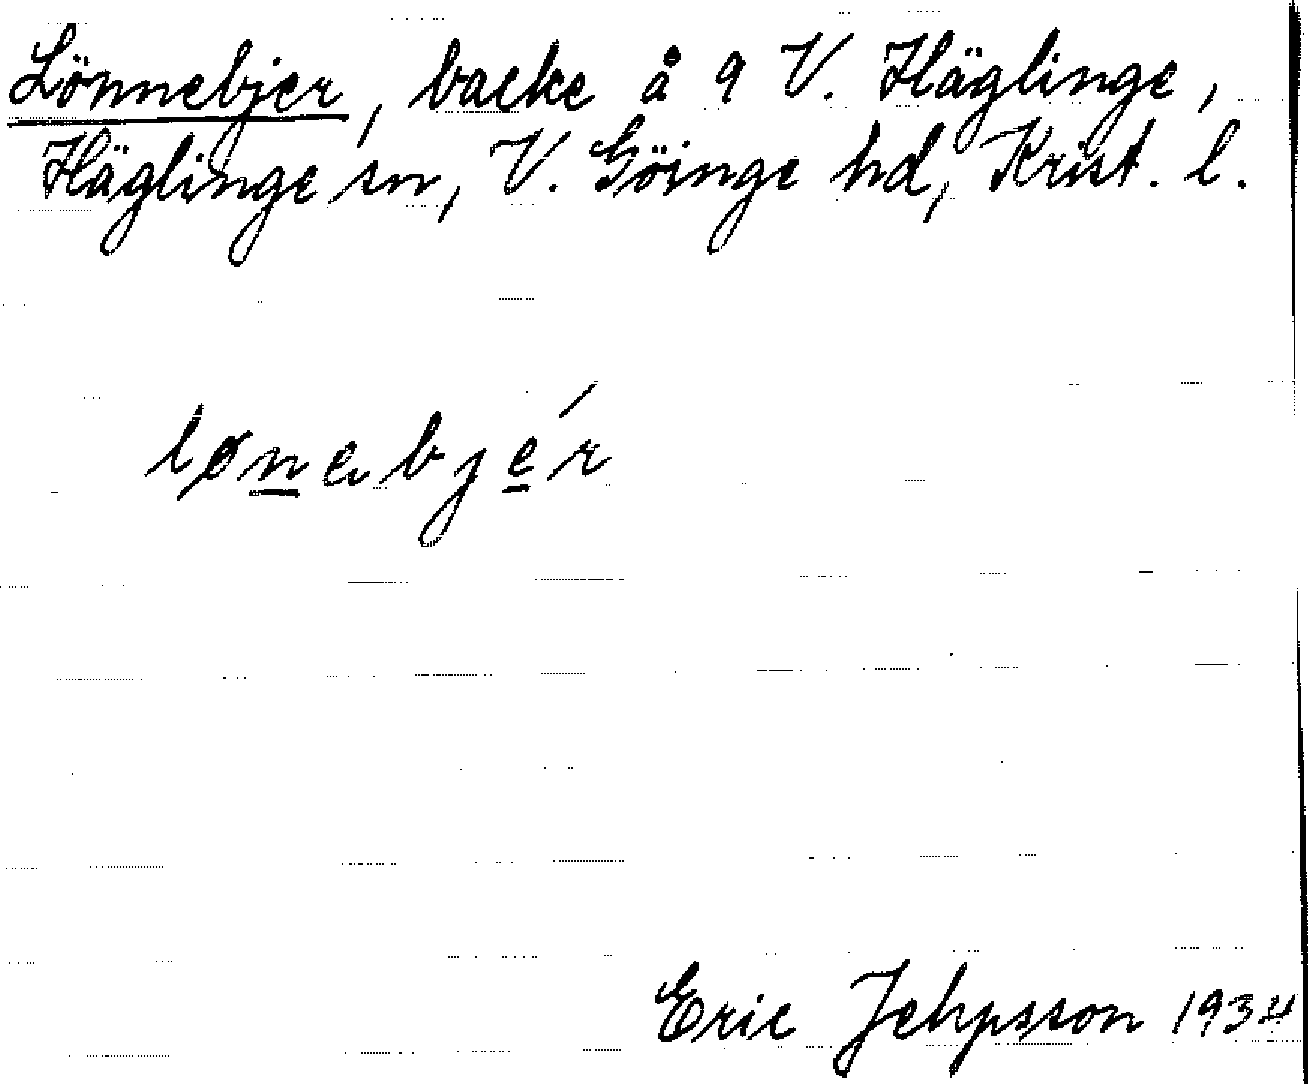 Lönnebjer, backe å 9 V. Häglinge,
Häglinge sn, V. Göinge hd, Krist. l.
lønebjer
Eric Jehpsson 1934